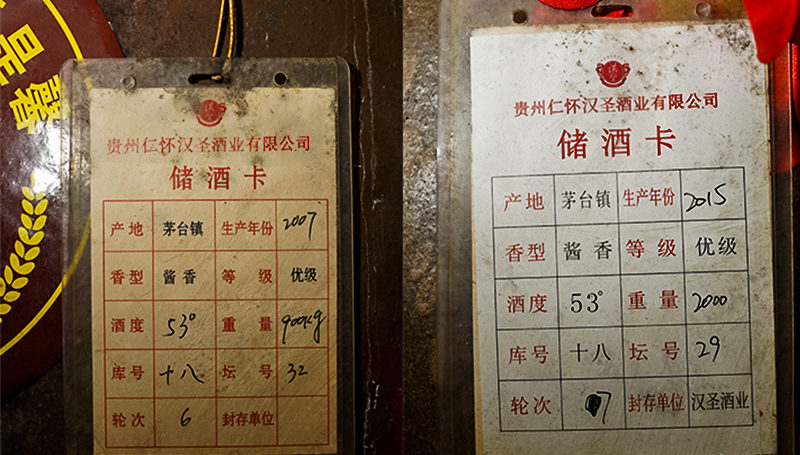 星馨
贵州仁怀汉圣酒业有限公司
储酒卡
产地 茅台镇 生产年份 2007
香型 酱香 等级 优级
酒度 53° 重量 900kg
库号 十八 坛号 32
轮次 6 封存单位
贵州仁怀汉圣酒业有限公司
储酒卡
产地 茅台镇 生产年份 2015
香型 酱香 等级 优级
酒度 53° 重量 2000
库号 十八 坛号 29
轮次 7 封存单位 汉圣酒业